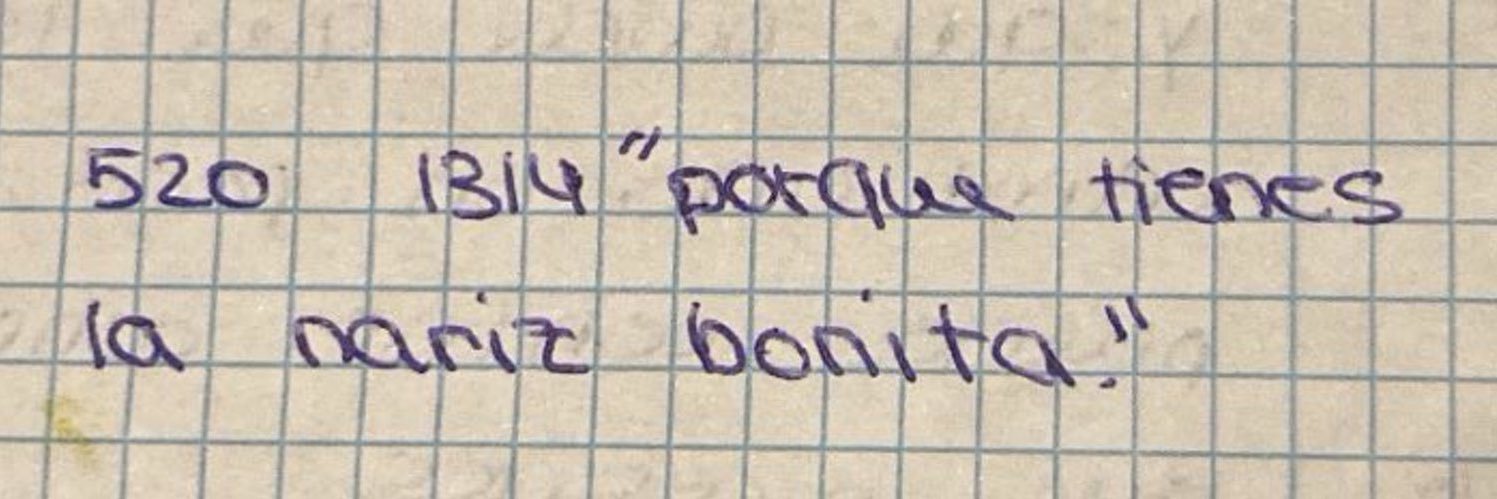 520 1314 "porque tienes
la nariz bonita."